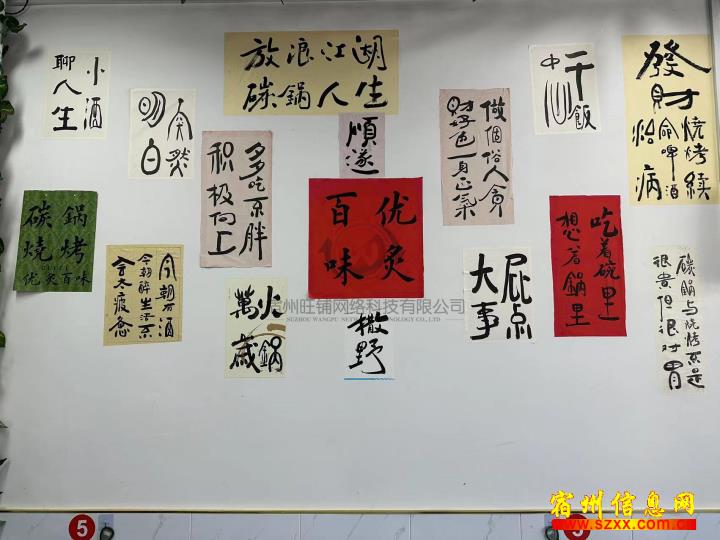 放浪江湖
碳锅人生
小酒
聊人生
突然
明白
多吃不胖
积极向上
順遂
做個俗人貪
財好色一身正氣
干飯
中心
發财
燒烤续
命啤酒
治病
碳鍋
燒烤
优炙百味
今朝有酒
今朝醉生活不
会太疲惫
火鍋
萬歲
优炙
百味
撒野
屁点
大事
吃着碗里
想着鍋里
碳鍋与烧烤不是
很貴但很对胃
宿州旺铺网络科技有限公司
SUZHOU WANGPU NETWORK TECHNOLOGY CO., LTD
5
5
宿州信息网
www.szxx.com.cn